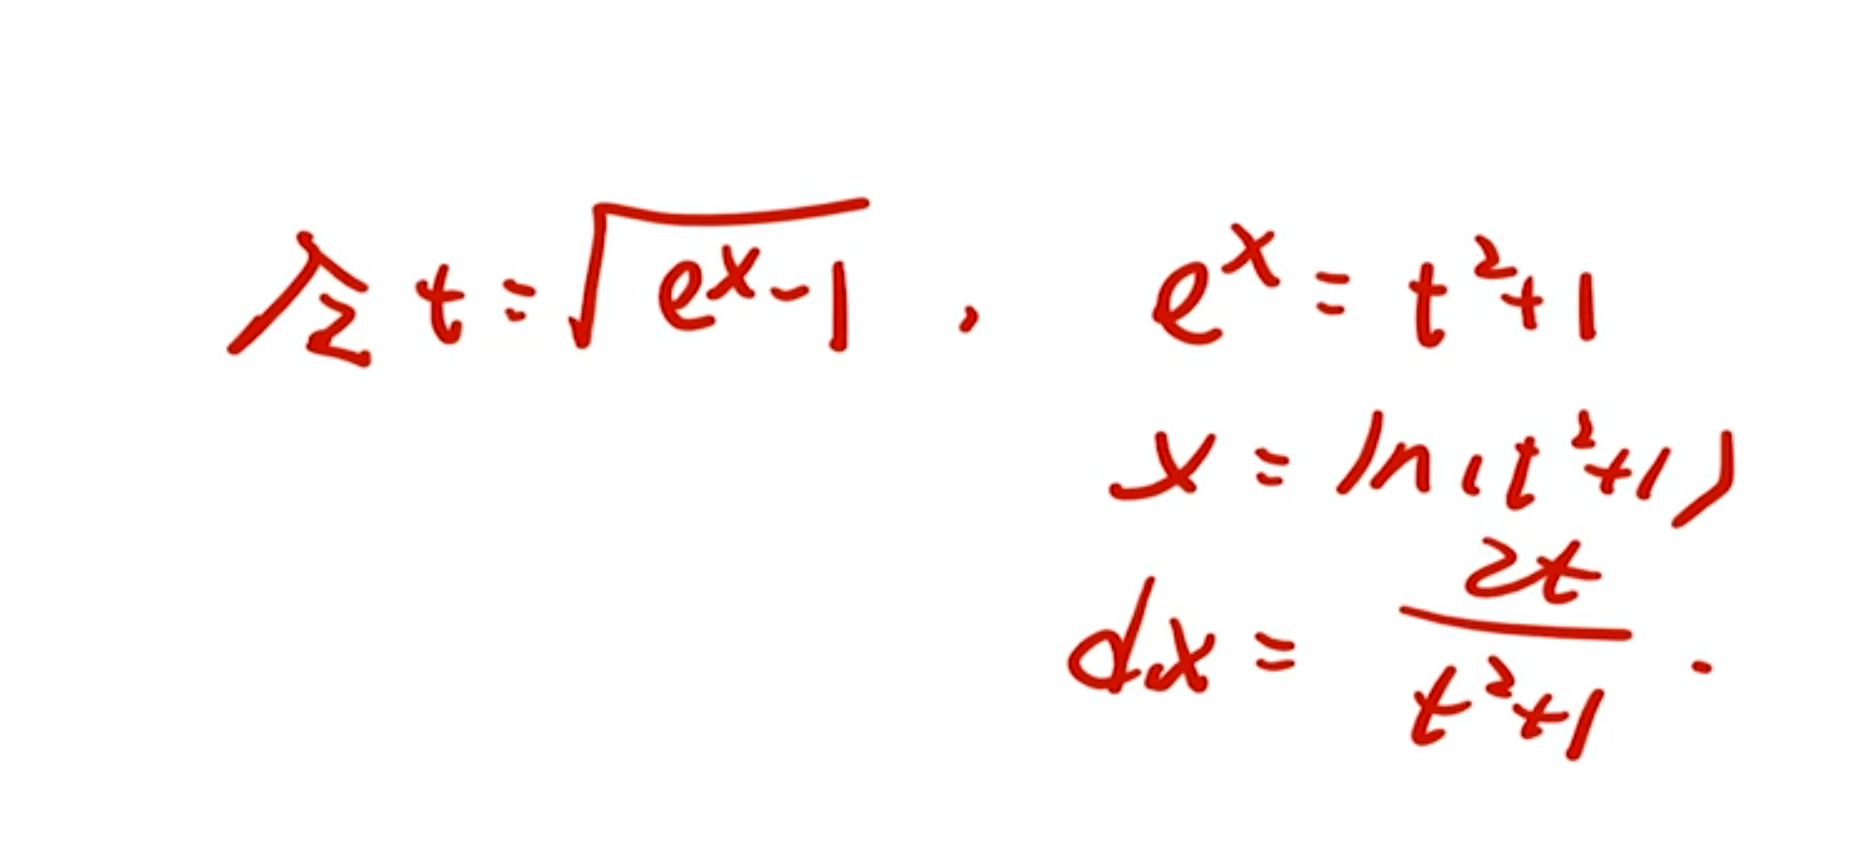 令 t = √(eˣ-1) , eˣ = t²+1
x = ln(t²+1)
dx = 2t/(t²+1) ·